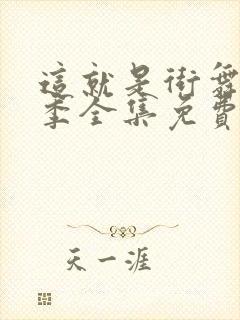 這就是街舞
季全集免費
天一涯